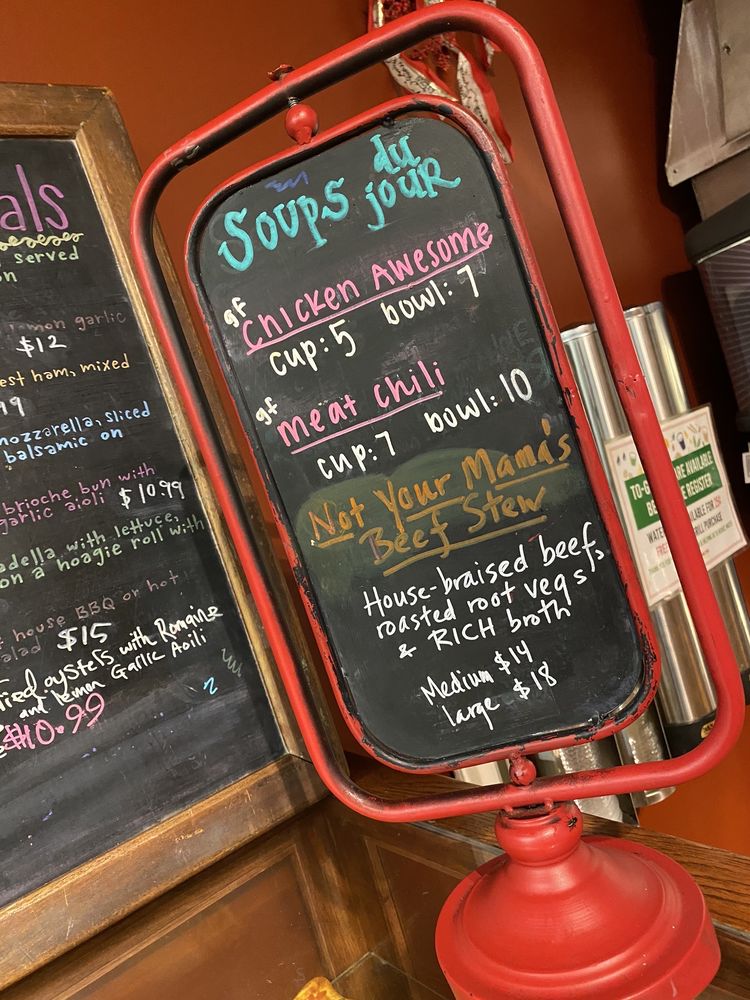 als
served
on
lemon garlic
$12
est ham, mixed
99
mozzarella, sliced
balsamic on
brioche bun with
garlic aioli $10.99
adella with lettuce,
on a hoagie roll with
house BBQ or hot
alad $15
ried oysters with Romaine
and lemon Garlic Aoili
$10.99
Soups du jour
gf Chicken Awesome
cup: 5 bowl: 7
gf meat chili
cup: 7 bowl: 10
Not Your Mama's
Beef Stew
House-braised beef,
roasted root vegs,
& RICH broth
Medium $14
large $18
TO-G ARE AVAILABLE
REGISTER